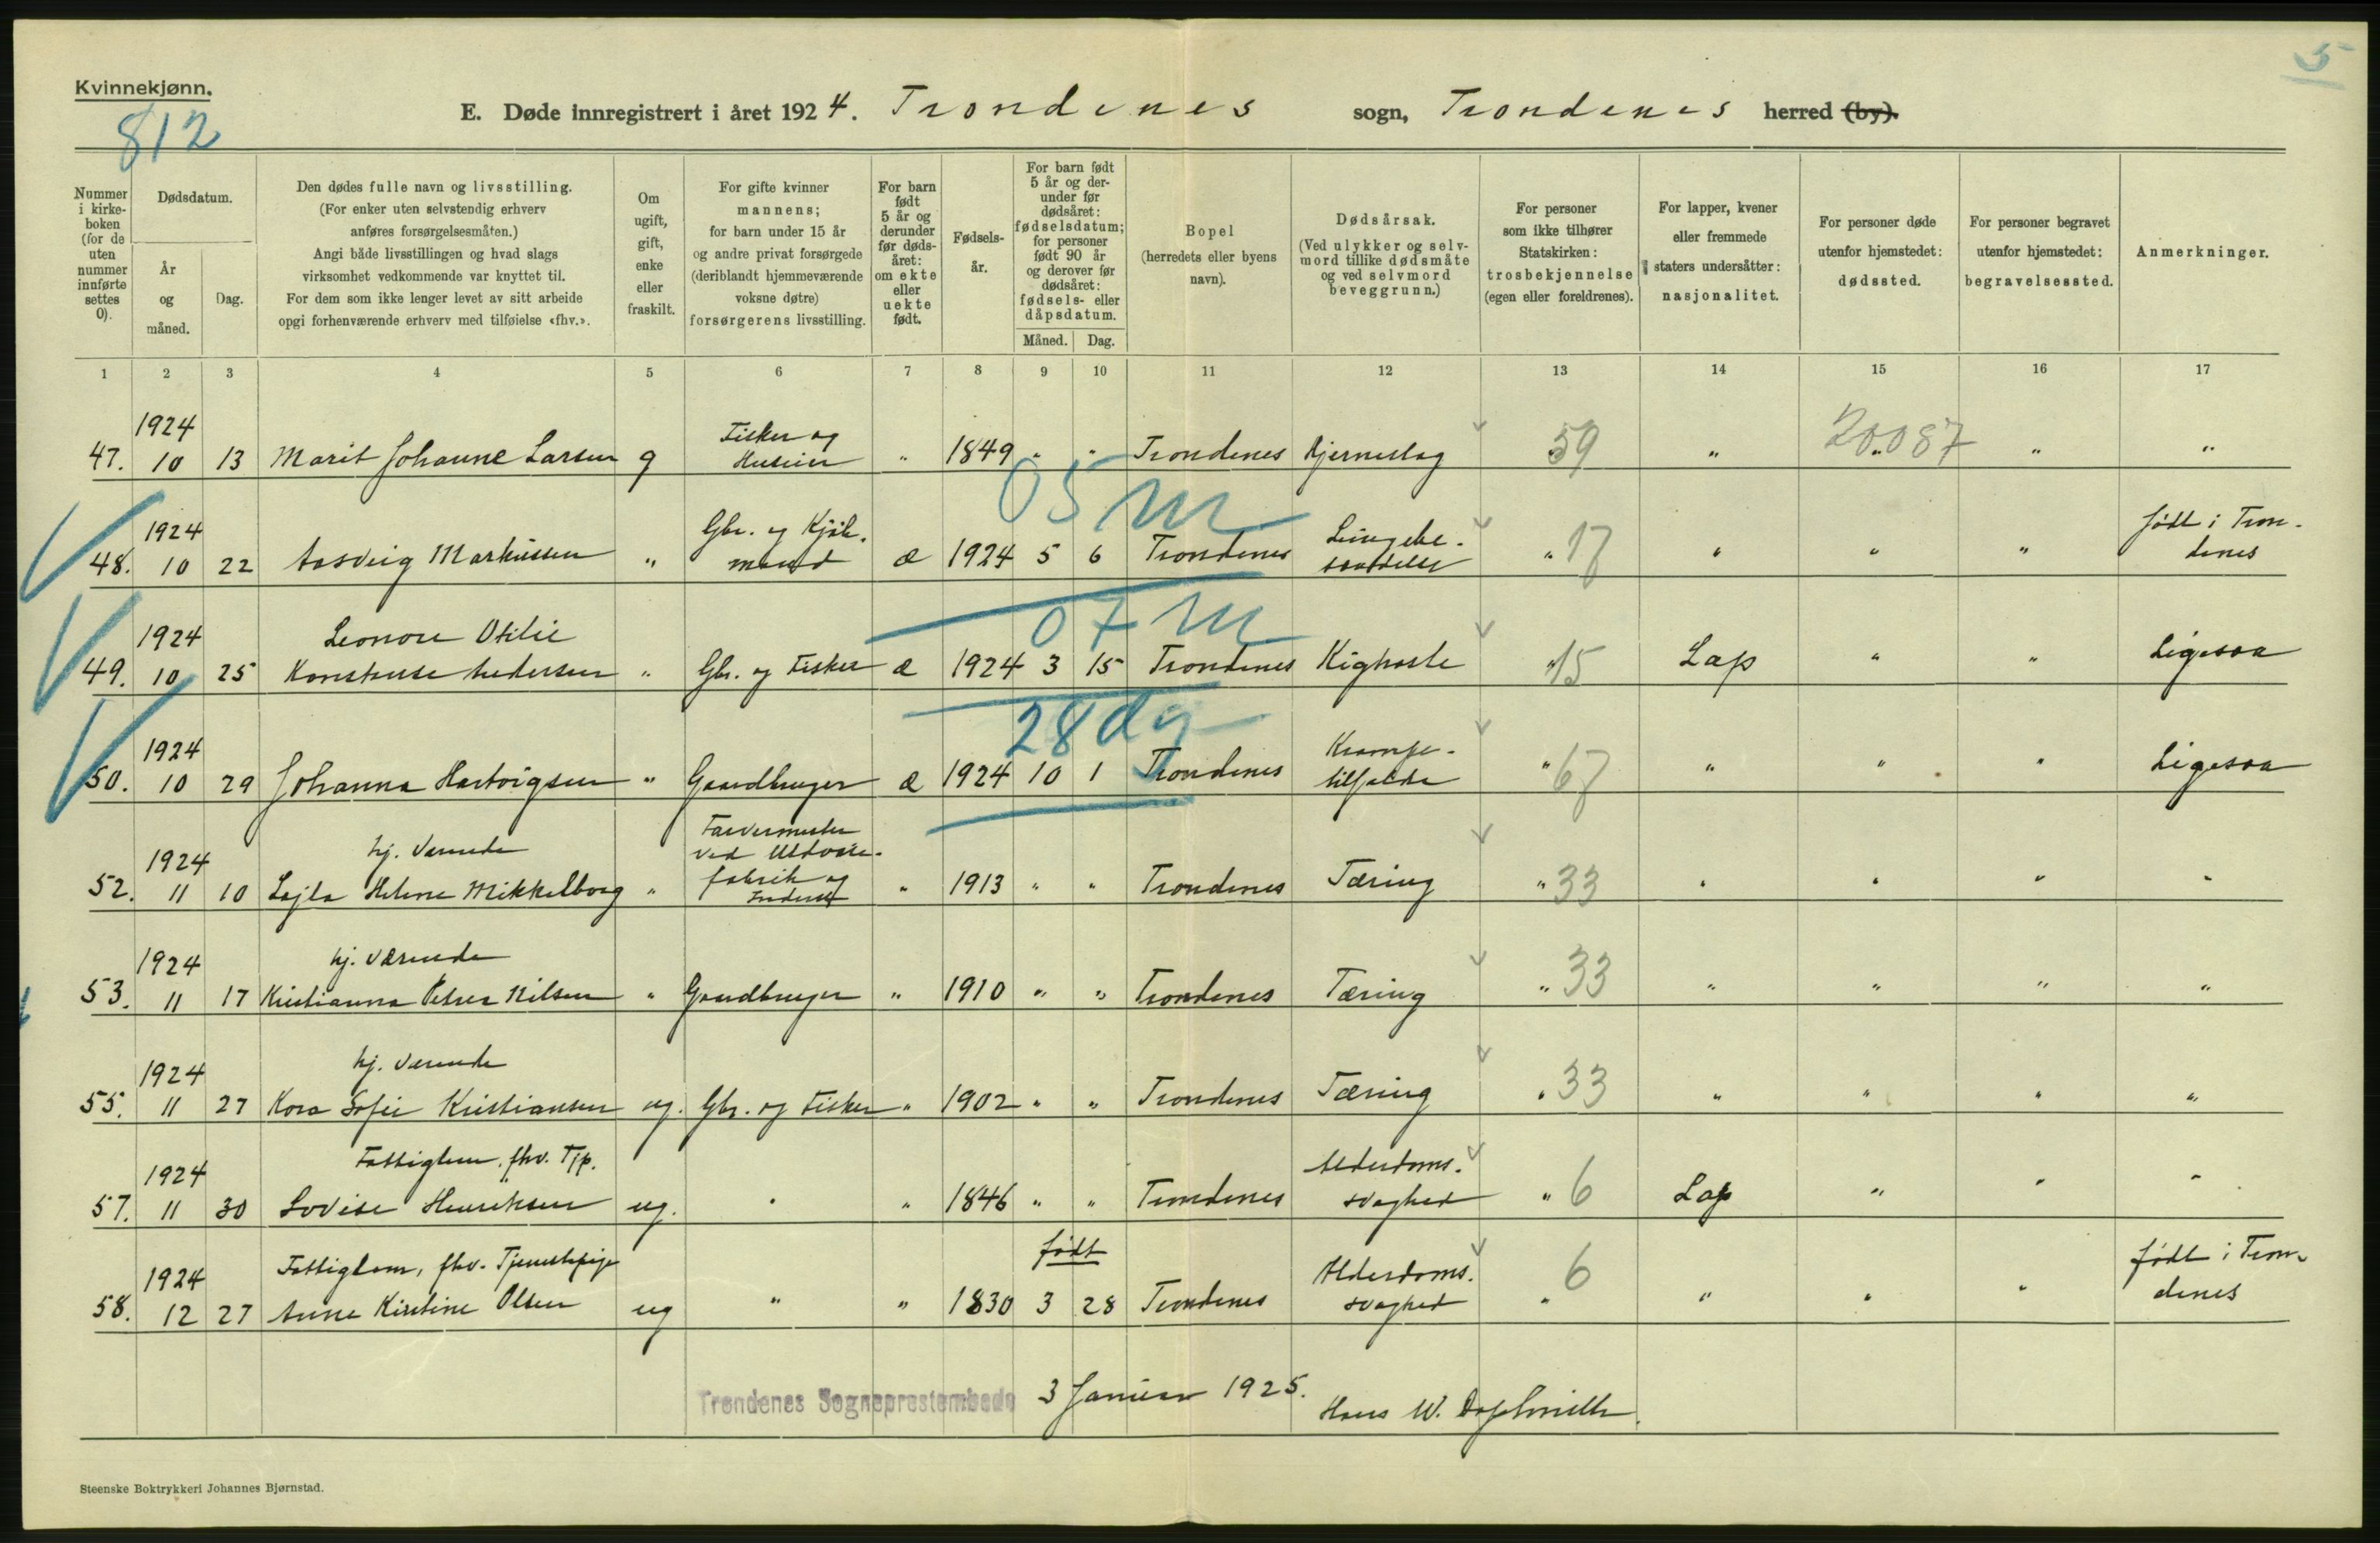 5
Kvinnekjønn.
812
E. Døde innregistrert i året 1924. Trondenes sogn, Trondenes herred (by).
Nummer i kirke-boken (for de uten nummer innførte settes 0).
Dødsdatum.
År og måned.
Dag.
Den dødes fulle navn og livsstilling.
(For enker uten selvstendig erhverv
anføres forsørgelsesmåten.)
Angi både livsstillingen og hvad slags
virksomhet vedkommende var knyttet til.
For dem som ikke lenger levet av sitt arbeide
opgi forhenværende erhverv med tilføielse «fhv.».
Om
ugift,
gift,
enke
eller
fraskilt.
For gifte kvinner
mannens;
for barn under 15 år
og andre privat forsørgede
(deriblandt hjemmeværende
voksne døtre)
forsørgerens livsstilling.
For barn
født
5 år og
derunder
før døds-
året:
om ekte
eller
uekte
født.
Fødsels-
år.
For barn født
5 år og der-
under før
dødsåret:
fødselsdatum;
for personer
født 90 år
og derover før
dødsåret:
fødsels- eller
dåpsdatum.
Måned. Dag.
Bopel
(herredets eller byens
navn).
Dødsårsak.
(Ved ulykker og selv-
mord tillike dødsmåte
og ved selvmord
beveggrunn.)
For personer
som ikke tilhører
Statskirken:
trosbekjennelse
(egen eller foreldrenes).
For lapper, kvener
eller fremmede
staters undersåtter:
nasjonalitet.
For personer døde
utenfor hjemstedet:
dødssted.
For personer begravet
utenfor hjemstedet:
begravelsessted.
Anmerkninger.
1 2 3 4 5 6 7 8 9 10 11 12 13 14 15 16 17
1924 Fisker og
47. 10 13 Marit Johanne Larsen g Huseier " 1849 " " Trondenes Hjerneslag 59 " 20087 " "
05 m
1924 Gbr. og Kjøb- Lungebe- født i Tron-
48. 10 22 Aasveig Markussen " mand æ 1924 5 6 Trondenes tændelse " 17 " " " denes
07 m
1924 Leonore Otilie
49. 10 25 Konstanse Pedersen " Gbr. og Fisker æ 1924 3 15 Trondenes Kighoste " 15 Lap " " Ligesaa
28 dg
1924 Krampe-
50. 10 29 Johanna Hartvigsen " Gaardbruger æ 1924 10 1 Trondenes tilfælde " 67 " " " Ligesaa
1924 hj. værende Farvermester ved Uldvare-
52. 11 10 Lajla Helene Mikkelborg " fabrik og " 1913 " " Trondenes Tæring " 33 " " " "
1924 hj. værende
53. 11 17 Kristianna Petrea Nilsen " Gaardbruger " 1910 " " Trondenes Tæring " 33 " " " "
1924 hj. værende
55. 11 27 Kora Sofie Kristiansen ug. Gbr. og Fisker " 1902 " " Trondenes Tæring " 33 " " " "
1924 Fattiglem, fhv. Tjp. Alderdoms-
57. 11 30 Lovise Henriksen ug. " " 1846 " " Trondenes svaghed " 6 Lap " " "
1924 Fattiglem, fhv. Tjenestepige født Alderdoms- født i Tron-
58. 12 27 Anne Kirstine Olsen ug " " 1830 3 28 Trondenes svaghed " 6 " " " denes
Trondenes Sogneprestembede 3 Januar 1925.
Hans W.
Steenske Boktrykkeri Johannes Bjørnstad.